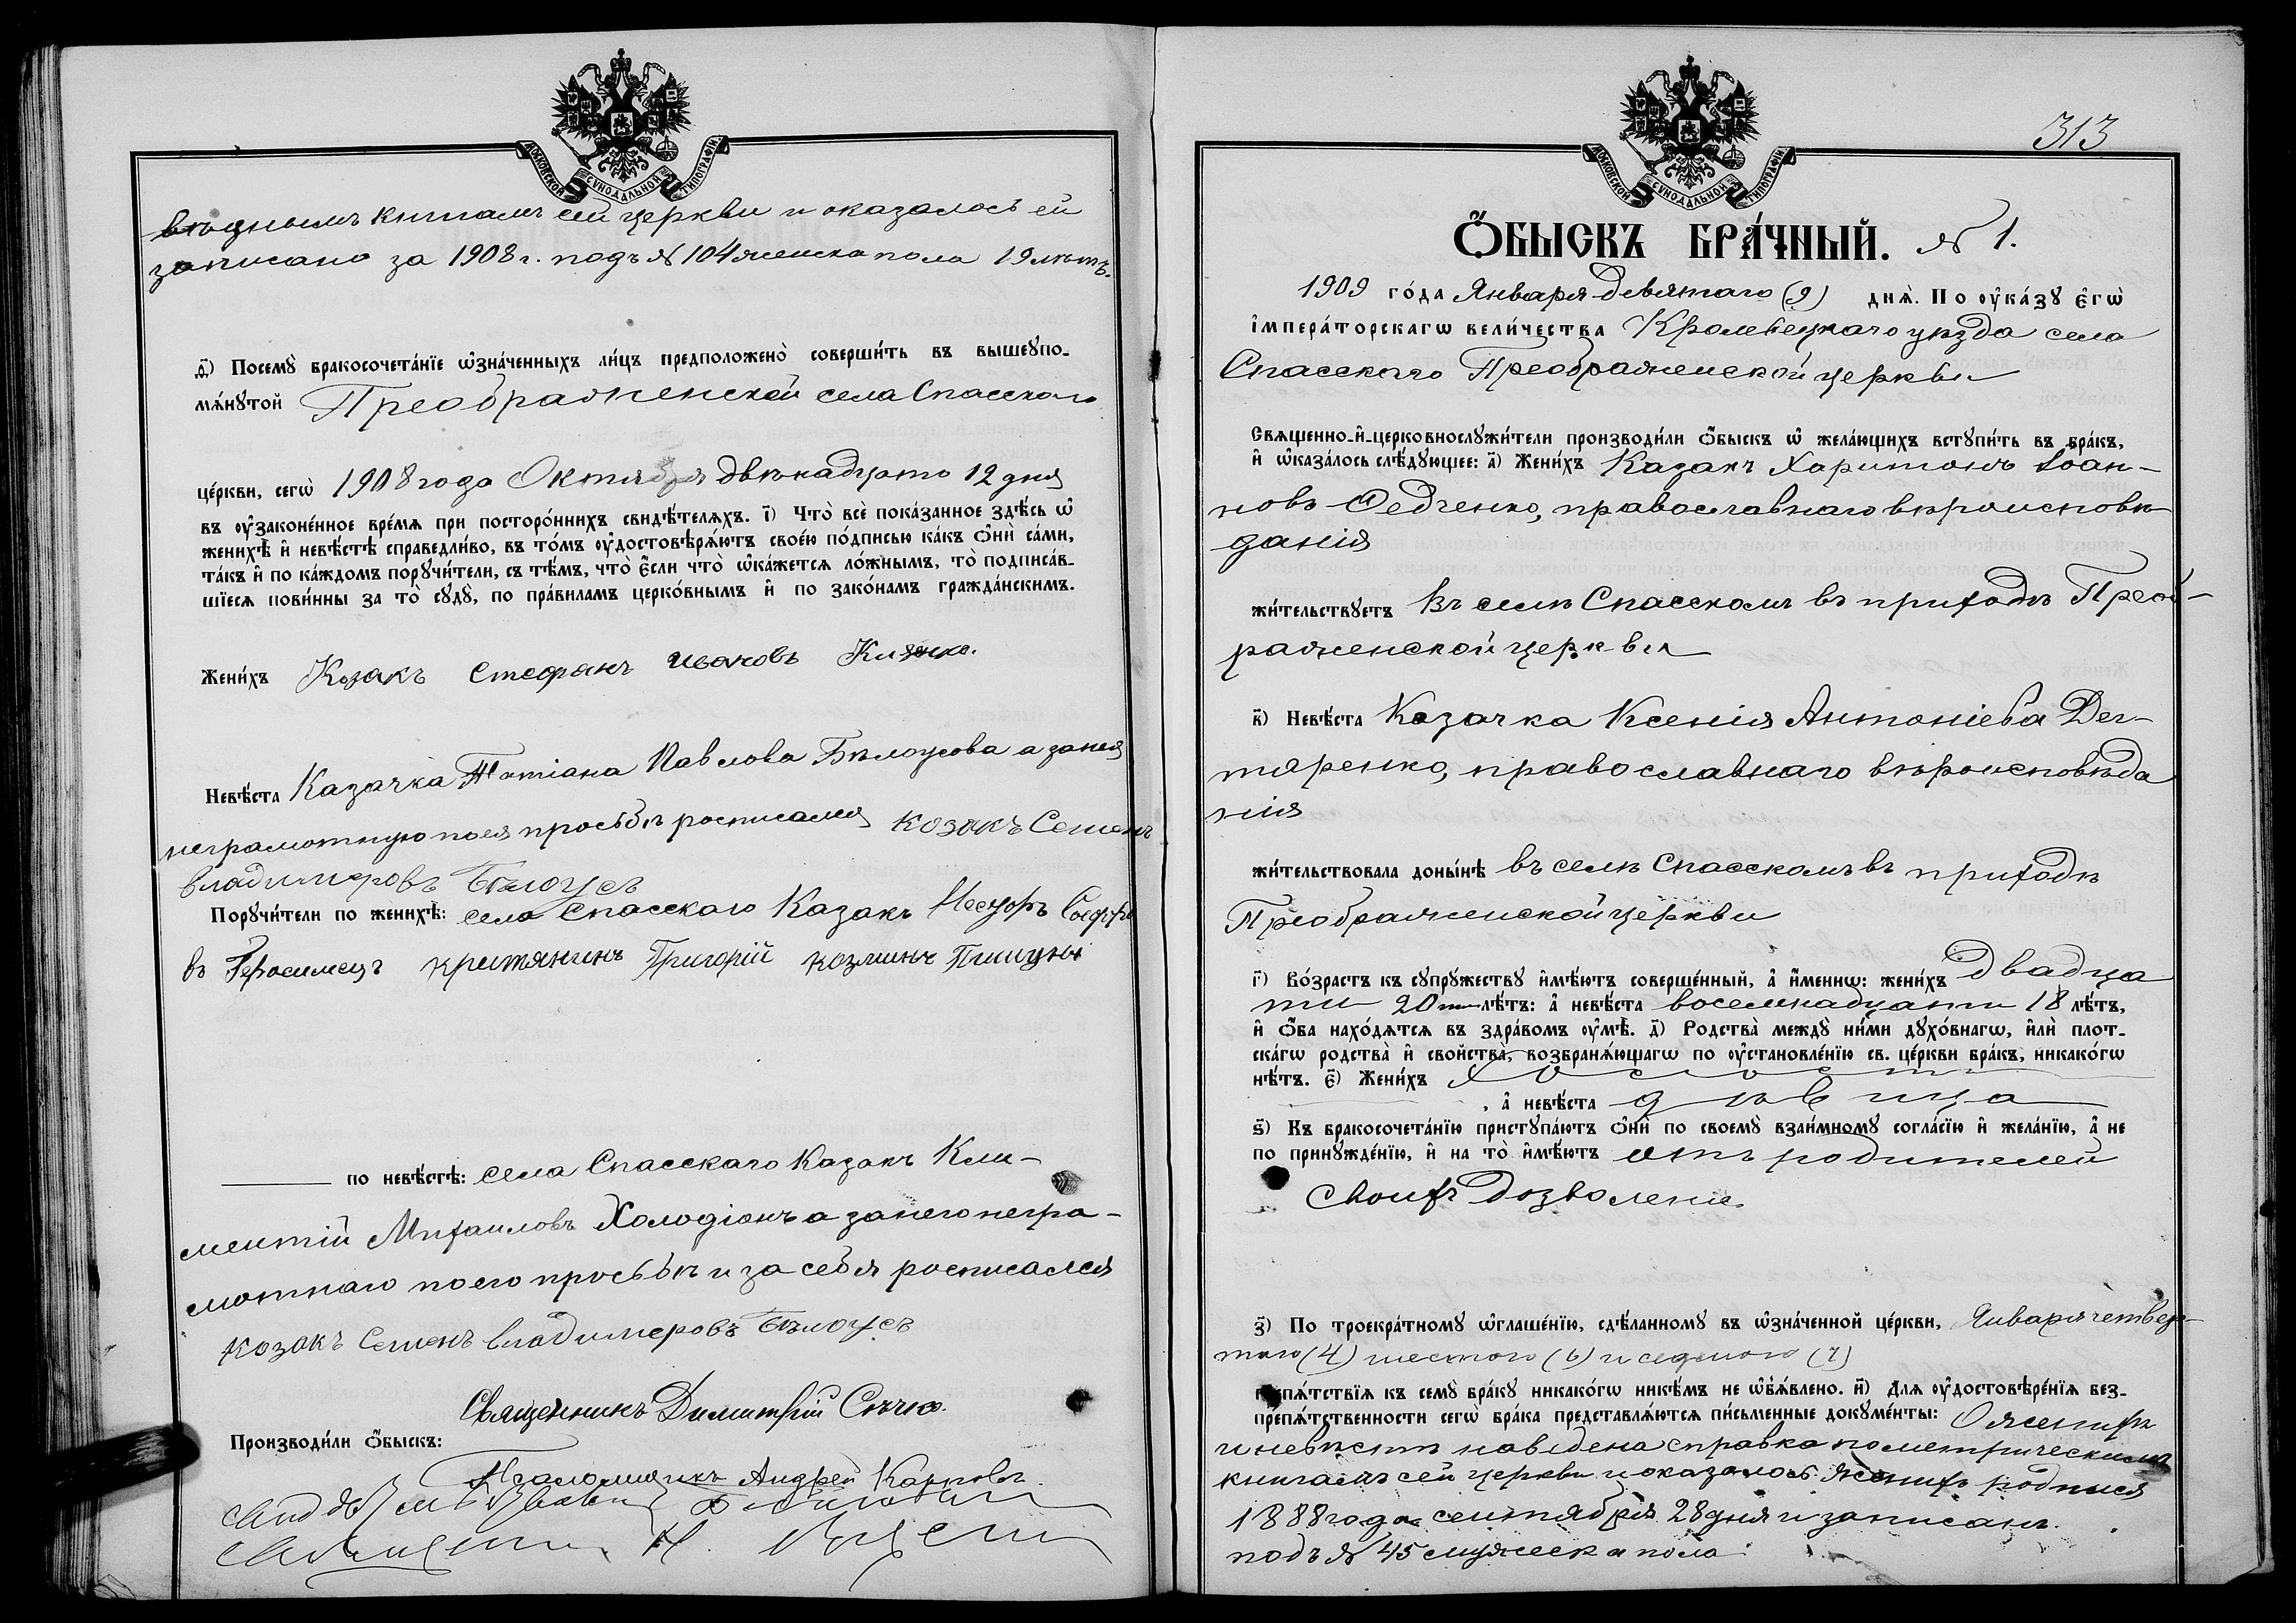 МОСКОВСКОЙ СѴНОДАЛЬНОЙ ТИПОГРАФІИ.
книгамъ сей церкви и оказалось ей
записано за 1908 г. подъ № 104 женска пола 19 лѣтъ.
д҃) Посемꙋ̀ бракосочета́нїе ѡ҆зна́ченныхъ ли́цъ предположено̀ соверши́ть въ вышеꙋпо-
мѧ́нꙋтой Преображенской села Спасскаго
це́ркви, сегѡ̀ 1908 года Октября двѣнадцато 12 дня
въ ᲂу҆законе́нное вре́мѧ при посторо́ннихъ свидѣ́телѧхъ. і҃) Что̀ всѐ пока́занное здѣ́сь ѡ҆
женихѣ̀ и҆ невѣ́стѣ справедли́во, въ то́мъ ᲂу҆достовѣрѧ́ютъ свое́ю по́дписью ка́къ ѻ҆нѝ са́ми,
та́къ и҆ по ка́ждомъ порꙋчи́тели, съ тѣ́мъ, что̀ є҆́сли что̀ ѡ҆ка́жетсѧ ло́жнымъ, то̀ подписа́в-
шїесѧ пови́нны за то̀ сꙋдꙋ̀, по пра́виламъ церко́внымъ и҆ по зако́намъ гражда́нскимъ.
Жени́хъ Козакъ Стефанъ Иваковъ
Невѣ́ста Казачка Татіана Павлова Бѣлоусова а за нея
неграмотную по ея просьбѣ росписался козакъ Семенъ
владимеровъ Бѣлоусъ
Порꙋчи́тели по женихѣ̀: села Спасскаго Казакъ
въ Герасимецъ Григорій козминъ
по невѣ́стѣ: села Спасскаго Казакъ Кли-
ментій Михаиловъ Холодіонъ а за него негра-
мотнаго по его просьбѣ и за себя росписался
козакъ Семенъ владимеровъ Бѣлоусъ
Священникъ Димитрій
Производи́ли ѻ҆́быскъ:
Псаломщикъ Андрей Карповъ.
313
МОСКОВСКОЙ СѴНОДАЛЬНОЙ ТИПОГРАФІИ.
Ѻ҆́БЫСКЪ БРА́ЧНЫЙ. № 1.
1909 го́да Января девятаго (9) днѧ̀. По ᲂу҆ка́зꙋ є҆гѡ̀
і҆мпера́торскагѡ вели́чества Кролевецкаго уѣзда села
Спасскаго Преображенской церкви
Свѧщенно-и҆-церковнослꙋжи́тели производи́ли ѻ҆́быскъ ѡ҆ жела́ющихъ встꙋпи́ть въ бра́къ,
и҆ ѡ҆каза́лось слѣ́дꙋющее: а҃) Жени́хъ Казакъ Харитонъ Іоан-
новъ Федченко, православнаго вѣроисповѣ
данія
жи́тельствꙋетъ въ селѣ Спасскомъ въ приходѣ Преоб-
раженской церкви
в҃) Невѣ́ста Козачка Ксенія Антоніева Дег-
тяренко, православнаго вѣроисповѣда
нія
жи́тельствовала доны́нѣ въ селѣ Спасскомъ въ приходѣ
Преображенской церкви
г҃) Во́зрастъ къ сꙋпрꙋ́жествꙋ и҆мѣ́ютъ соверше́нный, а҆ и҆́меннѡ: жени́хъ двадца
ти 20 ти лѣ́тъ: а҆ невѣ́ста восемнадцати 18 лѣ́тъ,
и҆ ѻ҆́ба нахо́дѧтсѧ въ здра́вомъ ᲂу҆мѣ̀. д҃) Родства̀ междꙋ̀ ни́ми дꙋхо́внагѡ, и҆лѝ плот-
ска́гѡ родства̀ и҆ сво́йства, возбранѧ́ющагѡ по ᲂу҆становле́нїю св. це́ркви бра́къ, никако́гѡ
нѣ́тъ. є҃) Жени́хъ холостъ
, а҆ невѣ́ста дѣвица
ѕ҃) Къ бракосочета́нїю пристꙋпа́ютъ ѻ҆нѝ по своемꙋ̀ взаи́мномꙋ согла́сїю и҆ жела́нїю, а҆ не
по принꙋжде́нїю, и҆ на то̀ и҆мѣ́ютъ отъ родителей
своихъ дозволение
з҃) По троекра́тномꙋ ѡ҆глаше́нїю, сдѣ́ланномꙋ въ ѡ҆зна́ченной це́ркви, Января четвер-
таго (4) шестого (6) и седмого (7)
препѧ́тствїѧ къ семꙋ̀ бра́кꙋ никако́гѡ никѣ́мъ не ѡ҆б̾ѧ́влено. и҃) Для ᲂу҆достовѣре́нїѧ без-
препѧ́тственности сегѡ̀ бра́ка представлѧ́ютсѧ пи́сьменные докꙋме́нты: О женихѣ
и невѣстѣ наведена справка по метрическимъ
книгамъ сей церкви и оказалось женихъ родился
1888 года сентября 28 дня и записанъ
подъ № 45 мужеска пола